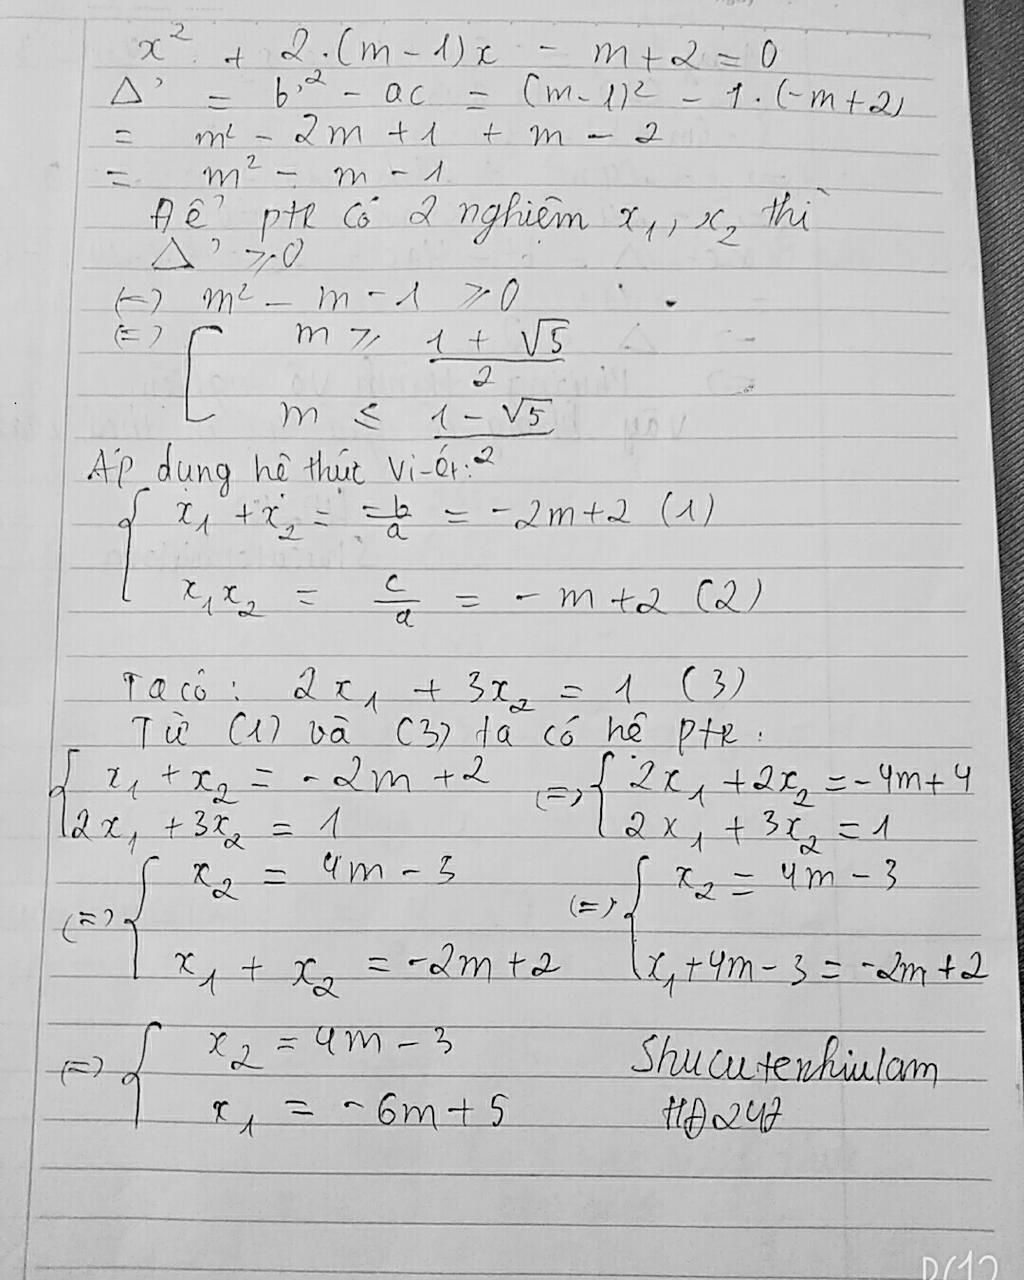 x² + 2.(m-1)x - m+2 = 0
Δ' = b'² - ac = (m-1)² - 1.(-m+2)
= m² - 2m + 1 + m - 2
= m² - m - 1
Để ptr có 2 nghiệm x₁, x₂ thì
Δ' ≥ 0
(=) m² - m - 1 ≥ 0
(=) [ m ≥ (1 + √5)/2
m ≤ (1 - √5)/2
Áp dụng hệ thức Vi-ét:
{ x₁ + x₂ = -b/a = -2m+2 (1)
x₁x₂ = c/a = -m+2 (2)
Ta có: 2x₁ + 3x₂ = 1 (3)
Từ (1) và (3) ta có hệ ptr:
{ x₁ + x₂ = -2m+2 (=) { 2x₁ + 2x₂ = -4m+4
2x₁ + 3x₂ = 1 2x₁ + 3x₂ = 1
(=) { x₂ = 4m - 3 (=) { x₂ = 4m - 3
x₁ + x₂ = -2m+2 x₁ + 4m - 3 = -2m+2
(=) { x₂ = 4m - 3
x₁ = -6m+5
Shucutenhiulam
HĐ247